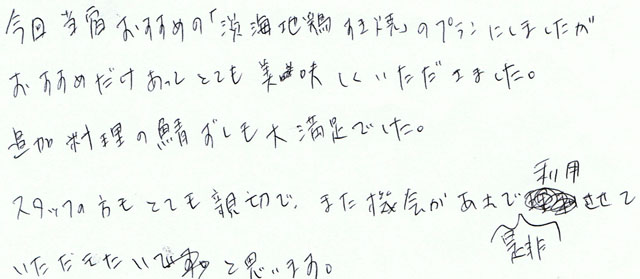 今回 当宿おすすめの「淡海地鶏すき焼」のプランにしましたが
おすすめだけあってとても美味しくいただきました。
追加料理の鯖ずしも大満足でした。
スタッフの方もとても親切で、また機会があれば是非利用させて
いただきたいと思います。